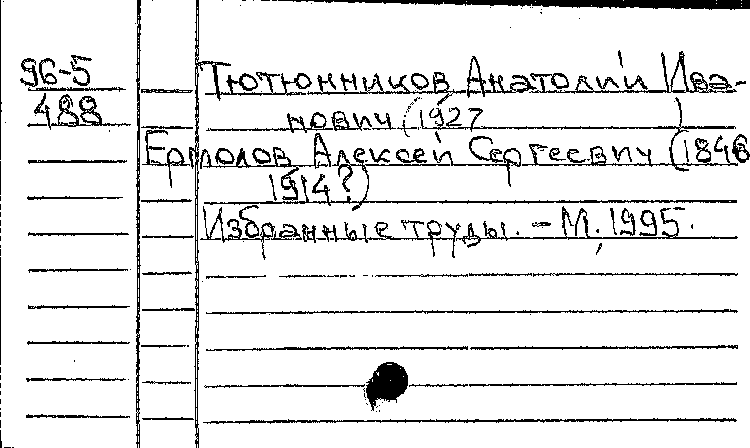 96-5 Тютюнников Анатолий Ива-
488 нович (1927 )
Ермолов Алексей Сергеевич (1846
1914?)
Избранные труды. - М., 1995.